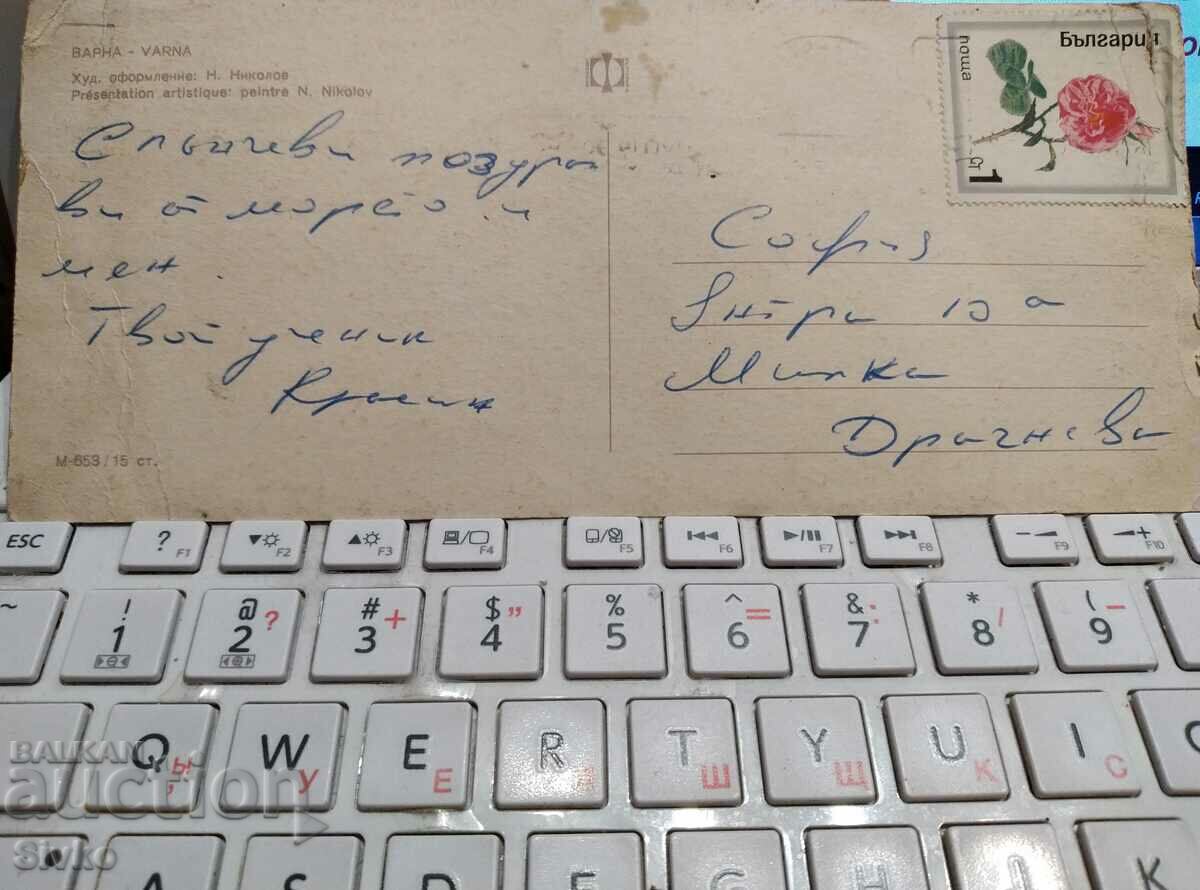 ВАРНА - VARNA
Худ. оформление: Н. Николов
Présentation artistique: peintre N. Nikolov
България
поща
1 ст
Слънчеви поздра
ви от морето и
мен.
Твой ученик
Красин
София
Янтра 10 а
Милка
Драгнева
М-653/15 ст.
ESC
? F1
F2
F3
F4
F5
F6
F7
F8
F9
F10
~
! 1
@ 2 ?
# 3 +
$ 4 "
% 5
^ 6 =
& 7 :
* 8 /
( 9 –
Q ы
W у
E е
R
T ш
Y щ
U к
I с
A
S
D
F
G
H
J
K
BALKAN
auction
Sivko